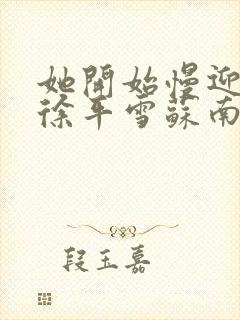 她開始慢迎
徐平雪蘇南
段玉嘉